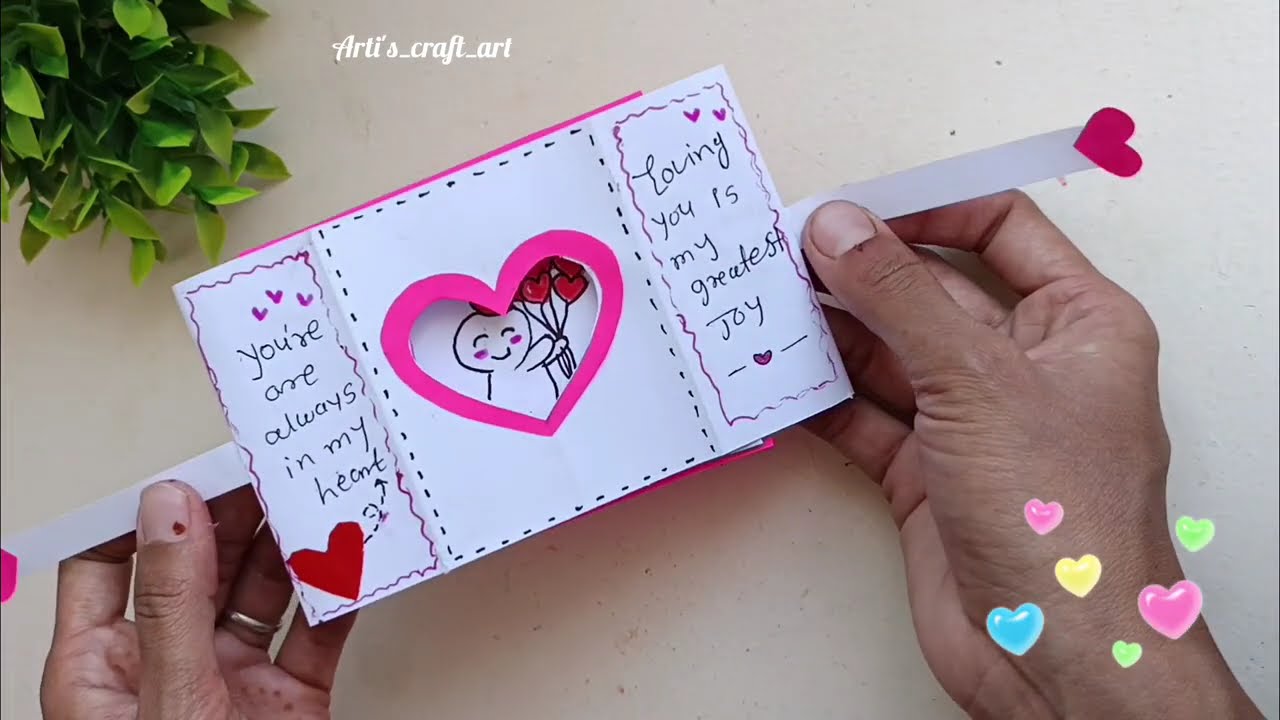 Arti's_craft_art
you're
are
always
in my
heart
Loving
you is
my
greatest
Joy